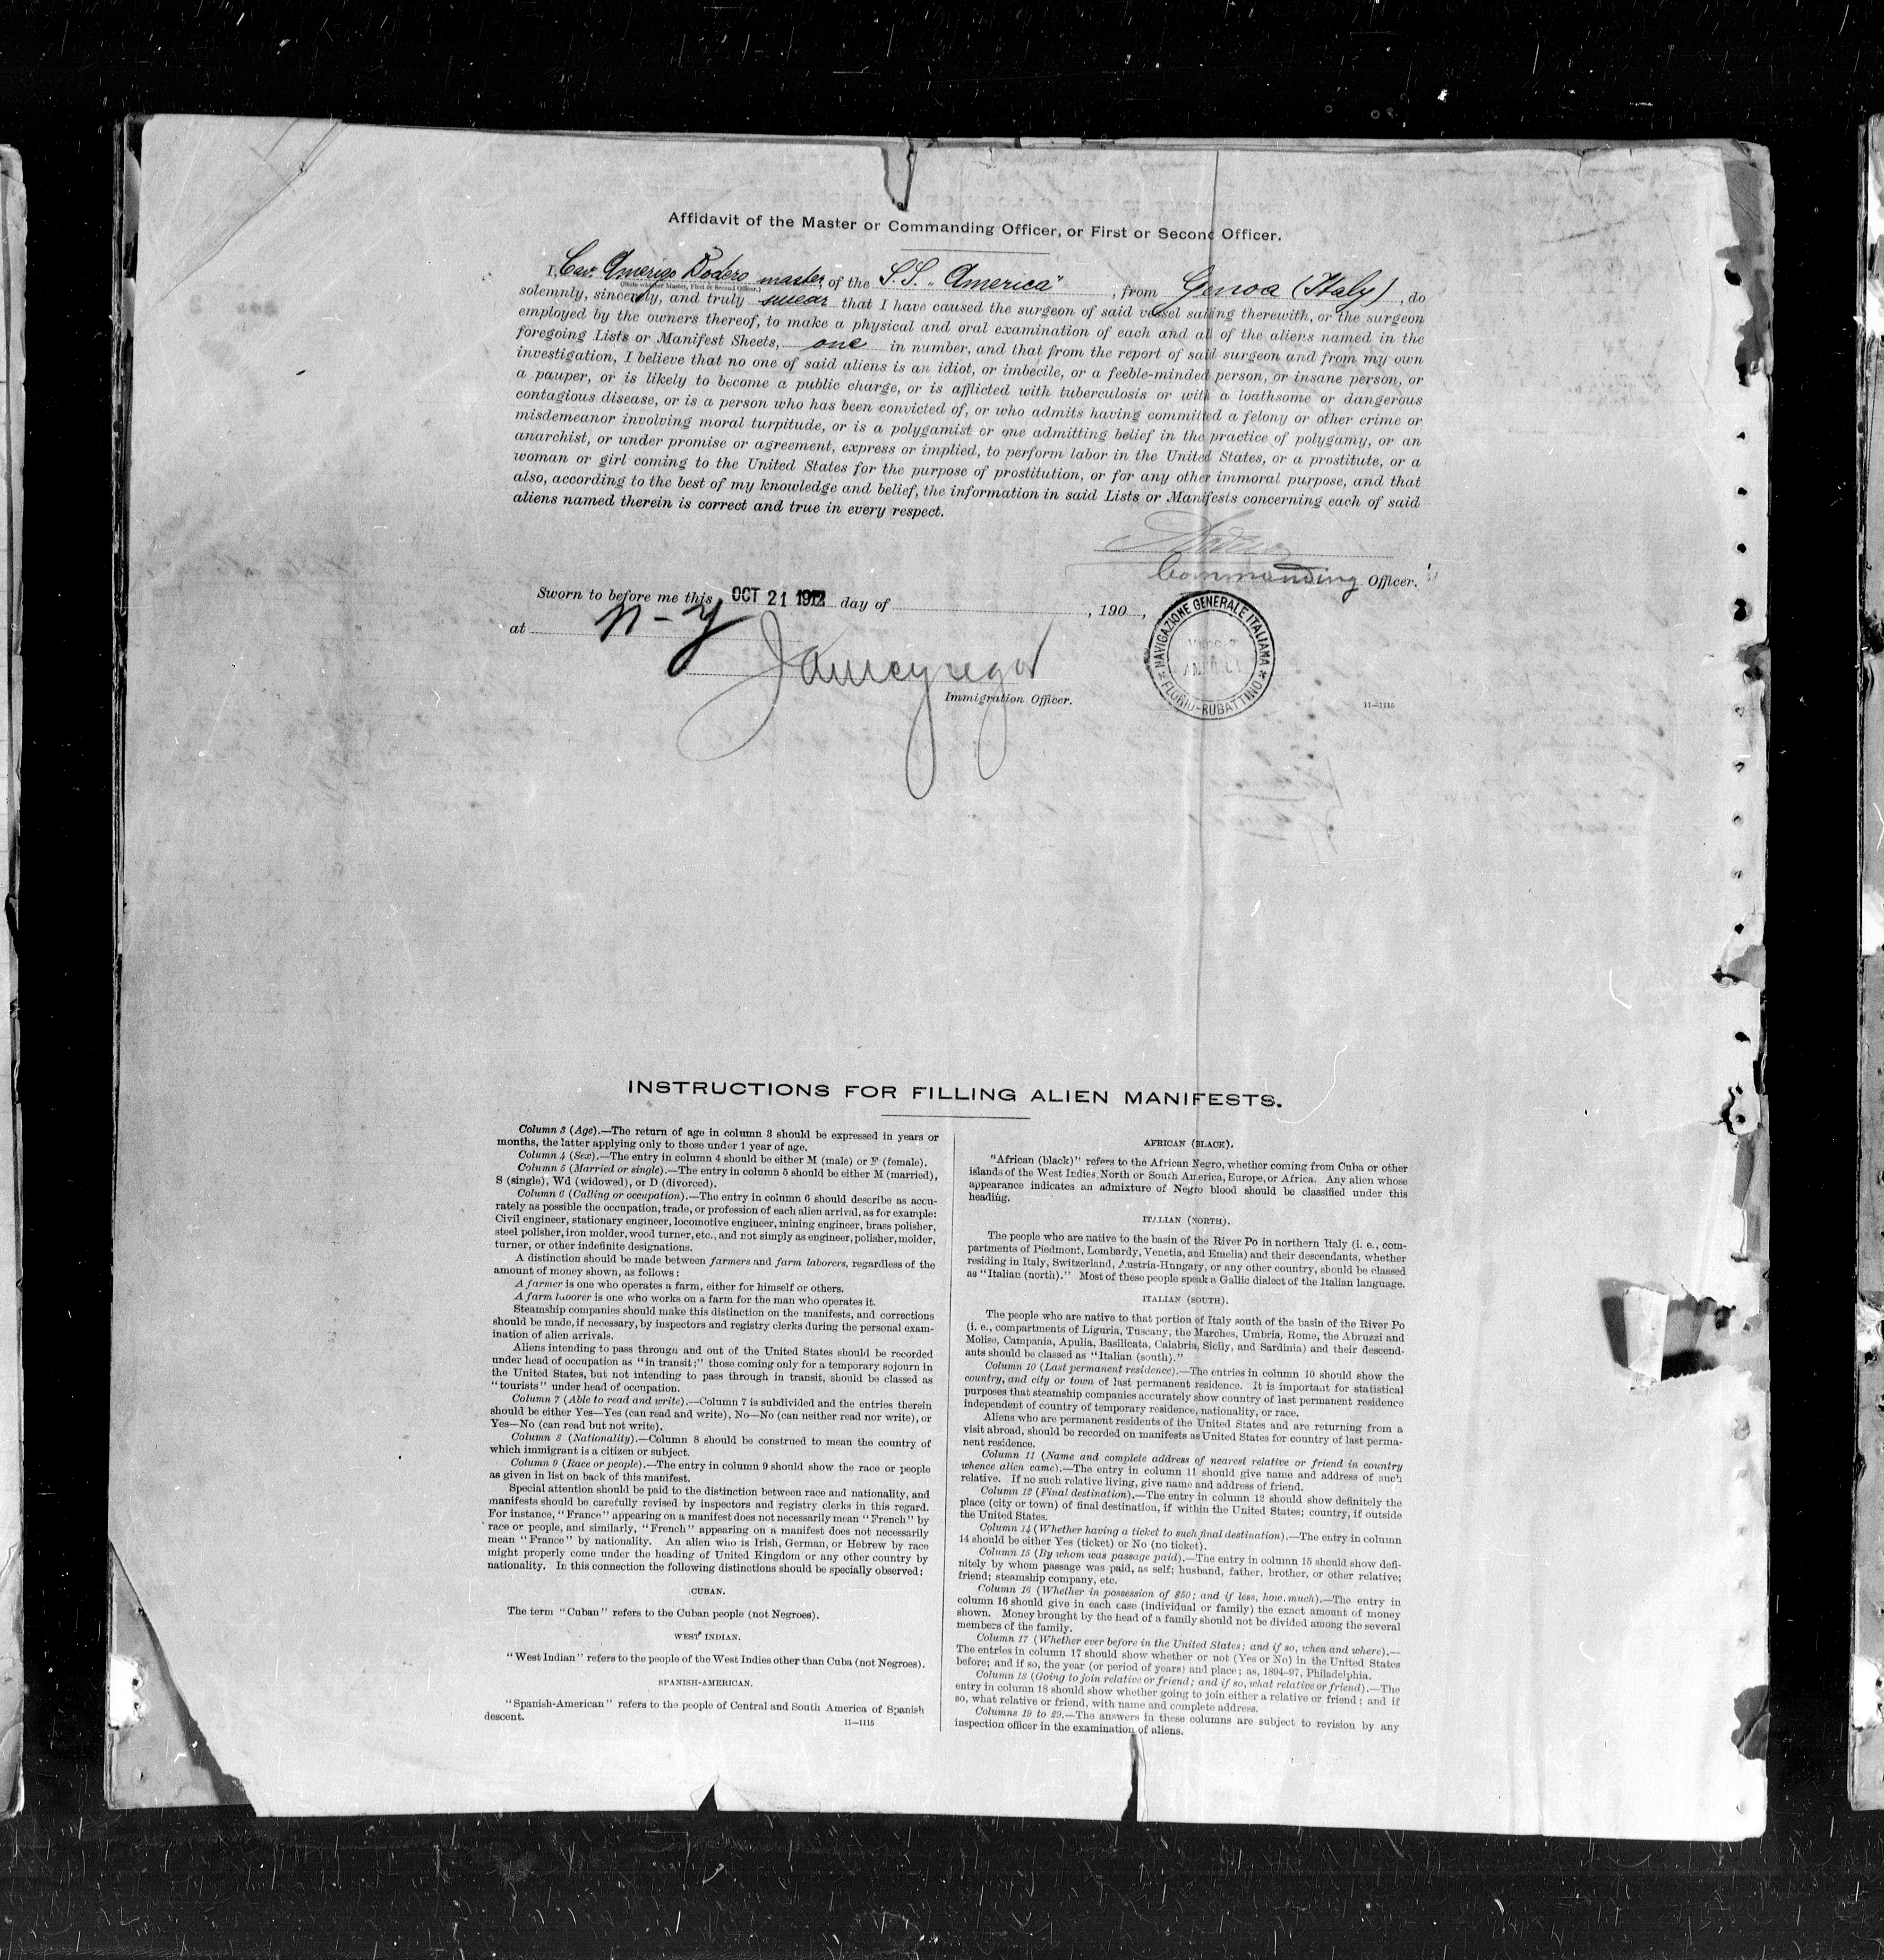 Affidavit of the Master or Commanding Officer, or First or Second Officer.
I, Cav. Amerigo Bodero master of the S.S. „America" , from Genoa (Italy) , do
(State whether Master, First or Second Officer.)
solemnly, sincerely, and truly swear that I have caused the surgeon of said vessel sailing therewith, or the surgeon
employed by the owners thereof, to make a physical and oral examination of each and all of the aliens named in the
foregoing Lists or Manifest Sheets, one in number, and that from the report of said surgeon and from my own
investigation, I believe that no one of said aliens is an idiot, or imbecile, or a feeble-minded person, or insane person, or
a pauper, or is likely to become a public charge, or is afflicted with tuberculosis or with a loathsome or dangerous
contagious disease, or is a person who has been convicted of, or who admits having committed a felony or other crime or
misdemeanor involving moral turpitude, or is a polygamist or one admitting belief in the practice of polygamy, or an
anarchist, or under promise or agreement, express or implied, to perform labor in the United States, or a prostitute, or a
woman or girl coming to the United States for the purpose of prostitution, or for any other immoral purpose, and that
also, according to the best of my knowledge and belief, the information in said Lists or Manifests concerning each of said
aliens named therein is correct and true in every respect.
Commanding Officer.
Sworn to before me this OCT 21 1912 day of , 190 ,
at N-Y
Immigration Officer.
NAVIGAZIONE GENERALE ITALIANA
* FLORIO-RUBATTINO *
11—1115
INSTRUCTIONS FOR FILLING ALIEN MANIFESTS.
Column 3 (Age).—The return of age in column 3 should be expressed in years or
months, the latter applying only to those under 1 year of age.
Column 4 (Sex).—The entry in column 4 should be either M (male) or F (female).
Column 5 (Married or single).—The entry in column 5 should be either M (married),
S (single), Wd (widowed), or D (divorced).
Column 6 (Calling or occupation).—The entry in column 6 should describe as accu-
rately as possible the occupation, trade, or profession of each alien arrival, as for example:
Civil engineer, stationary engineer, locomotive engineer, mining engineer, brass polisher,
steel polisher, iron molder, wood turner, etc., and not simply as engineer, polisher, molder,
turner, or other indefinite designations.
A distinction should be made between farmers and farm laborers, regardless of the
amount of money shown, as follows:
A farmer is one who operates a farm, either for himself or others.
A farm laborer is one who works on a farm for the man who operates it.
Steamship companies should make this distinction on the manifests, and corrections
should be made, if necessary, by inspectors and registry clerks during the personal exam-
ination of alien arrivals.
Aliens intending to pass through and out of the United States should be recorded
under head of occupation as "in transit;" those coming only for a temporary sojourn in
the United States, but not intending to pass through in transit, should be classed as
"tourists" under head of occupation.
Column 7 (Able to read and write).—Column 7 is subdivided and the entries therein
should be either Yes—Yes (can read and write), No—No (can neither read nor write), or
Yes—No (can read but not write).
Column 8 (Nationality).—Column 8 should be construed to mean the country of
which immigrant is a citizen or subject.
Column 9 (Race or people).—The entry in column 9 should show the race or people
as given in list on back of this manifest.
Special attention should be paid to the distinction between race and nationality, and
manifests should be carefully revised by inspectors and registry clerks in this regard.
For instance, "France" appearing on a manifest does not necessarily mean "French" by
race or people, and similarly, "French" appearing on a manifest does not necessarily
mean "France" by nationality. An alien who is Irish, German, or Hebrew by race
might properly come under the heading of United Kingdom or any other country by
nationality. In this connection the following distinctions should be specially observed:
CUBAN.
The term "Cuban" refers to the Cuban people (not Negroes).
WEST INDIAN.
"West Indian" refers to the people of the West Indies other than Cuba (not Negroes).
SPANISH-AMERICAN.
"Spanish-American" refers to the people of Central and South America of Spanish
descent.
11—1115
AFRICAN (BLACK).
"African (black)" refers to the African Negro, whether coming from Cuba or other
islands of the West Indies, North or South America, Europe, or Africa. Any alien whose
appearance indicates an admixture of Negro blood should be classified under this
heading.
ITALIAN (NORTH).
The people who are native to the basin of the River Po in northern Italy (i. e., com-
partments of Piedmont, Lombardy, Venetia, and Emelia) and their descendants, whether
residing in Italy, Switzerland, Austria-Hungary, or any other country, should be classed
as "Italian (north)." Most of these people speak a Gallic dialect of the Italian language.
ITALIAN (SOUTH).
The people who are native to that portion of Italy south of the basin of the River Po
(i. e., compartments of Liguria, Tuscany, the Marches, Umbria, Rome, the Abruzzi and
Molise, Campania, Apulia, Basilicata, Calabria, Sicily, and Sardinia) and their descend-
ants should be classed as "Italian (south)."
Column 10 (Last permanent residence).—The entries in column 10 should show the
country, and city or town of last permanent residence. It is important for statistical
purposes that steamship companies accurately show country of last permanent residence
independent of country of temporary residence, nationality, or race.
Aliens who are permanent residents of the United States and are returning from a
visit abroad, should be recorded on manifests as United States for country of last perma-
nent residence.
Column 11 (Name and complete address of nearest relative or friend in country
whence alien came).—The entry in column 11 should give name and address of such
relative. If no such relative living, give name and address of friend.
Column 12 (Final destination).—The entry in column 12 should show definitely the
place (city or town) of final destination, if within the United States; country, if outside
the United States.
Column 14 (Whether having a ticket to such final destination).—The entry in column
14 should be either Yes (ticket) or No (no ticket).
Column 15 (By whom was passage paid).—The entry in column 15 should show defi-
nitely by whom passage was paid, as self; husband, father, brother, or other relative;
friend; steamship company, etc.
Column 16 (Whether in possession of $50; and if less, how much).—The entry in
column 16 should give in each case (individual or family) the exact amount of money
shown. Money brought by the head of a family should not be divided among the several
members of the family.
Column 17 (Whether ever before in the United States; and if so, when and where).—
The entries in column 17 should show whether or not (Yes or No) in the United States
before; and if so, the year (or period of years) and place; as, 1894-97, Philadelphia.
Column 18 (Going to join relative or friend; and if so, what relative or friend).—The
entry in column 18 should show whether going to join either a relative or friend; and if
so, what relative or friend, with name and complete address.
Columns 19 to 29.—The answers in these columns are subject to revision by any
inspection officer in the examination of aliens.